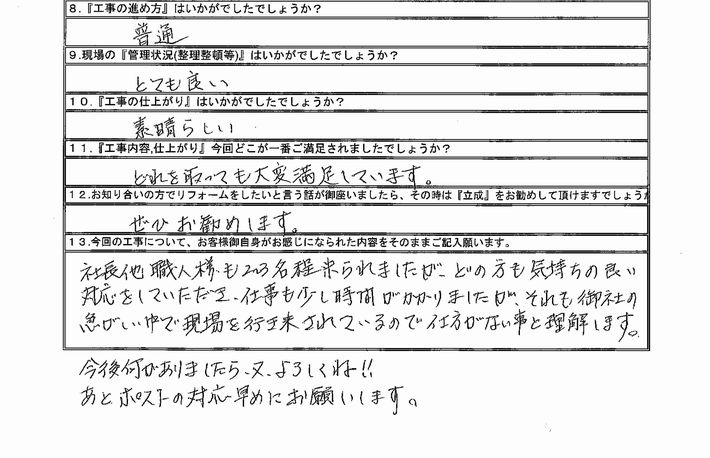 8.『工事の進め方』はいかがでしたでしょうか?
普通
9.現場の『管理状況(整理整頓等)』はいかがでしたでしょうか?
とても良い
10.『工事の仕上がり』はいかがでしたでしょうか?
素晴らしい
11.『工事内容,仕上がり』今回どこが一番ご満足されましたでしょうか?
どれを取っても大変満足しています。
12.お知り合いの方でリフォームをしたいと言う話が御座いましたら、その時は『立成』をお勧めして頂けますでしょうか
ぜひお勧めします。
13.今回の工事について、お客様御自身がお感じになられた内容をそのままご記入願います。
社長他職人様も2〜3名程来られましたが、どの方も気持ちの良い
対応をしていただき、仕事も少し時間がかかりましたが、それも御社の
急がしい中で現場を行き来されているので仕方がない事と理解します。
今後何がありましたら、又、よろしくね!!
あとポストの対応早めにお願いします。